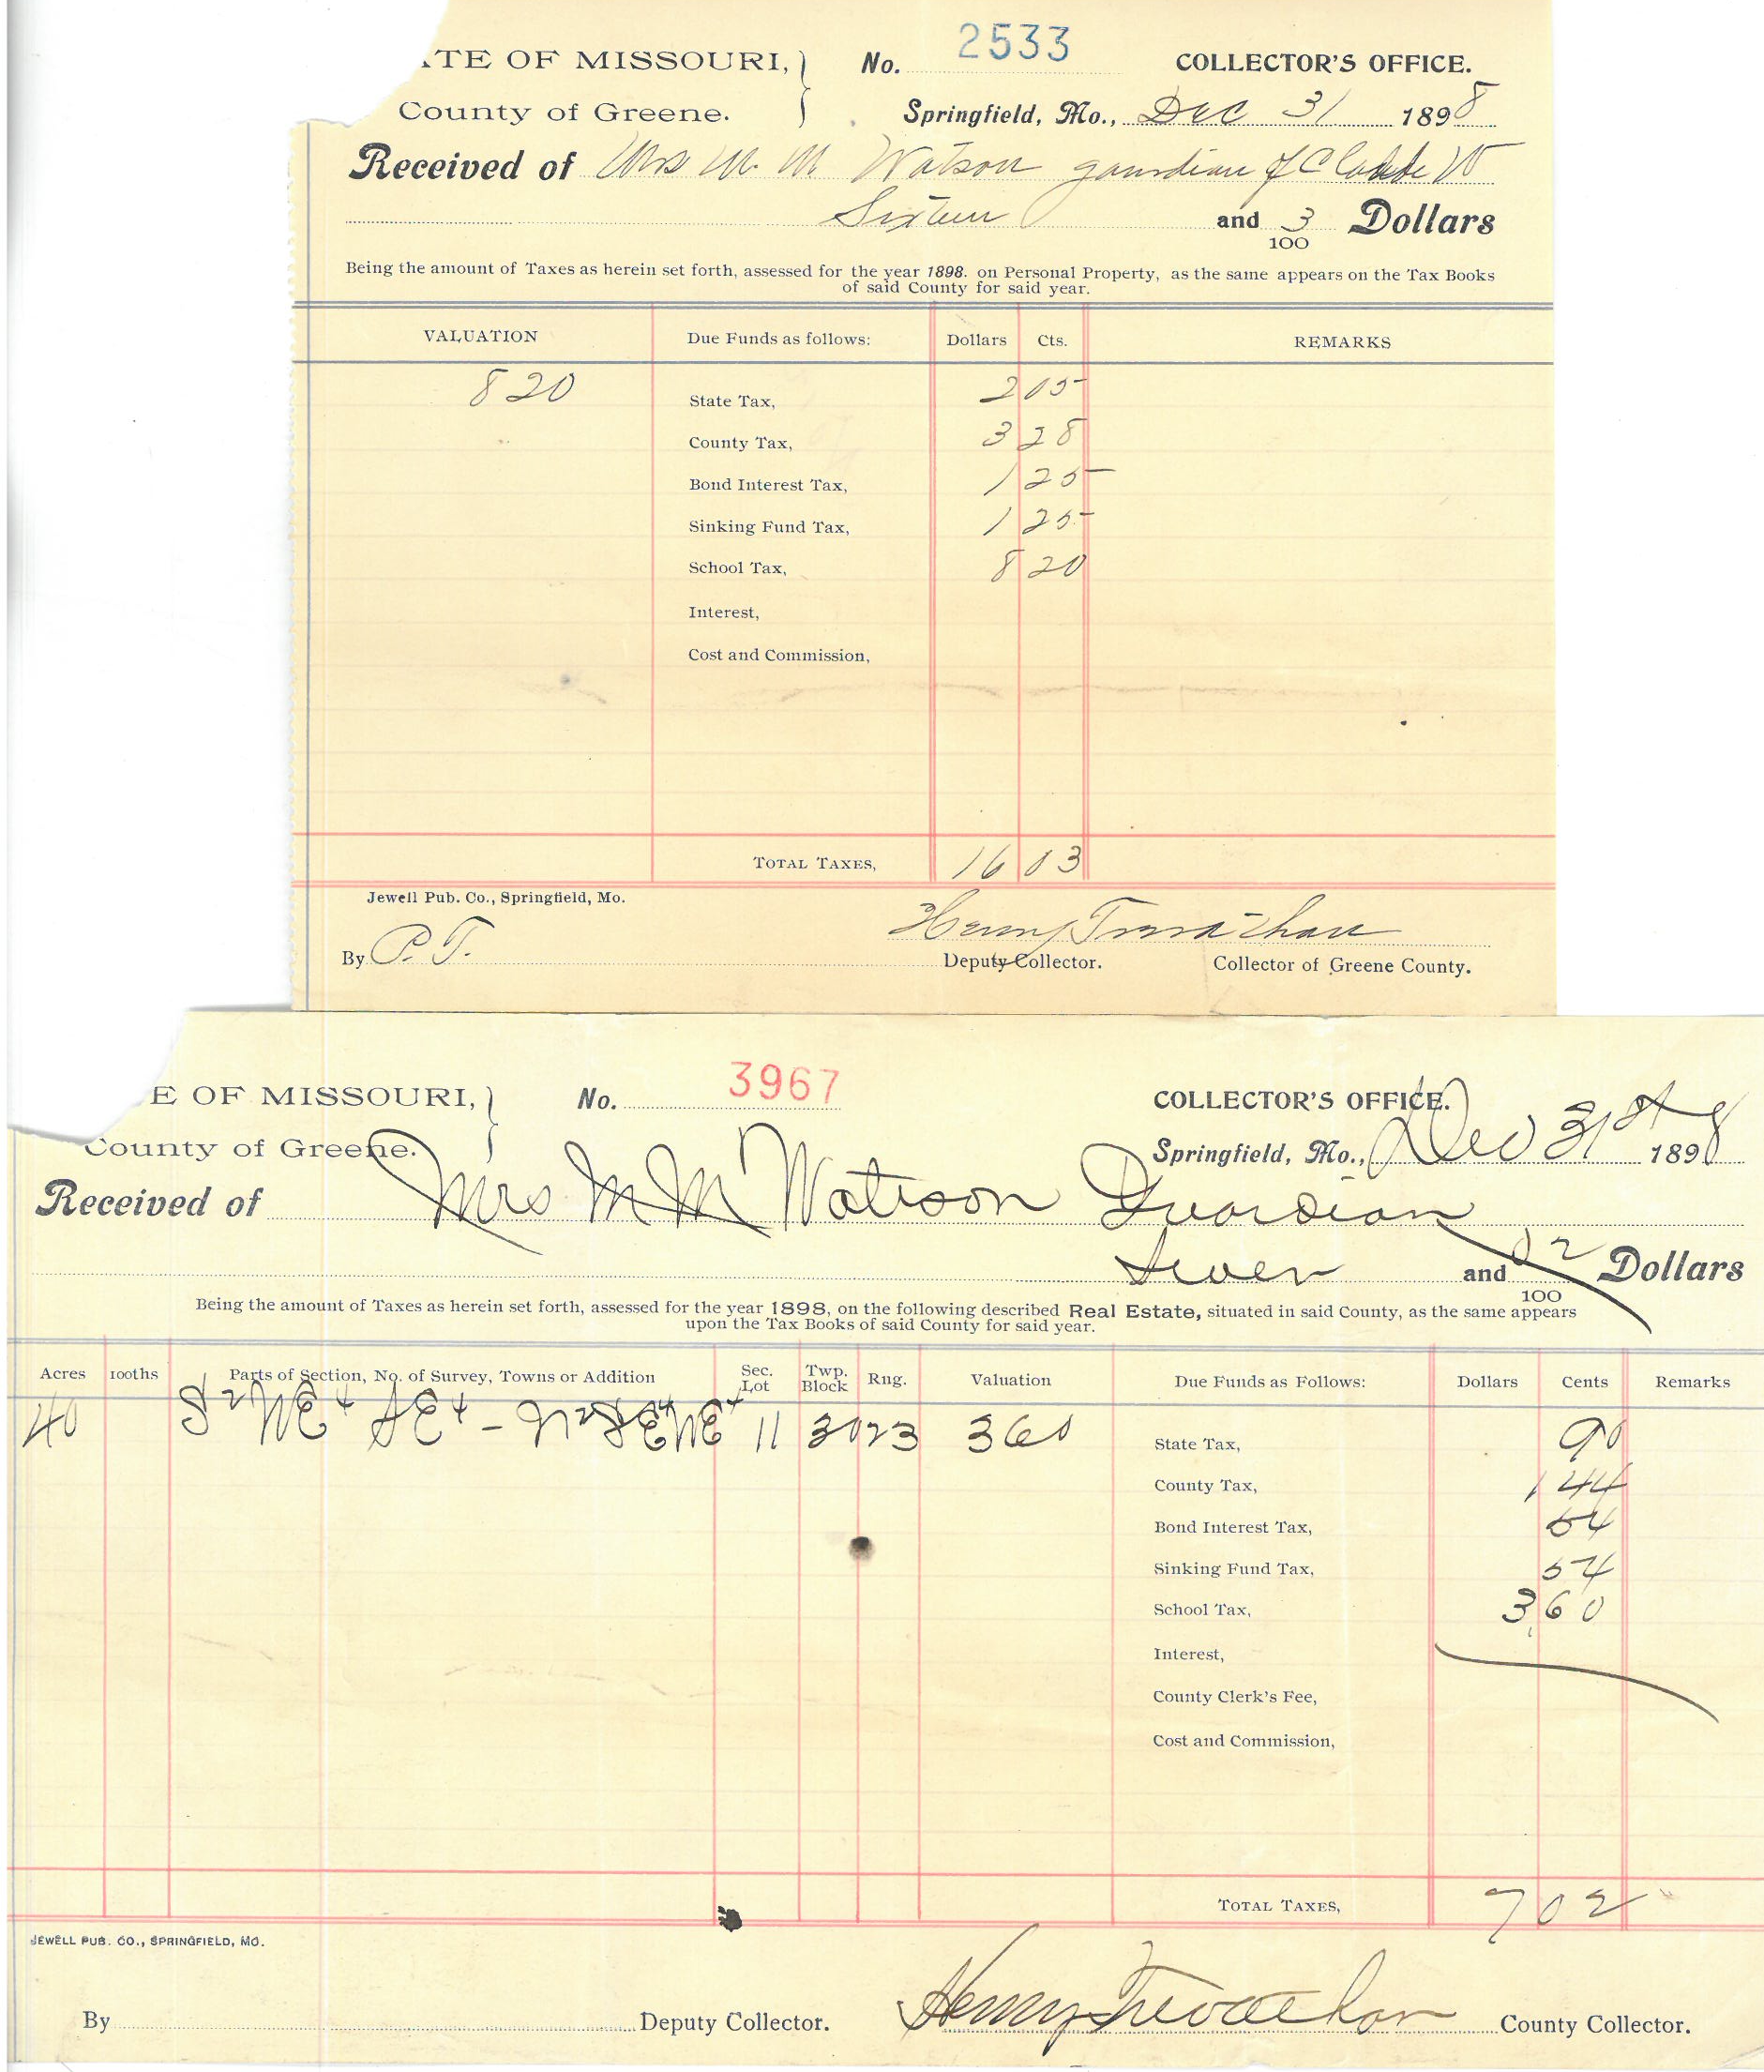 ATE OF MISSOURI, No. 2533 COLLECTOR'S OFFICE.
County of Greene. Springfield, Mo., Dec 31 1898
Received of Mrs M. M. Watson gaurdian of Claude W
Sixteen and 3/100 Dollars
Being the amount of Taxes as herein set forth, assessed for the year 1898. on Personal Property, as the same appears on the Tax Books
of said County for said year.
VALUATION Due Funds as follows: Dollars Cts. REMARKS
820 State Tax, 2 05
County Tax, 3 28
Bond Interest Tax, 1 25
Sinking Fund Tax, 1 25
School Tax, 8 20
Interest,
Cost and Commission,
TOTAL TAXES, 16 03
Jewell Pub. Co., Springfield, Mo.
Henry
By P. T. Deputy Collector. Collector of Greene County.
E OF MISSOURI, No. 3967 COLLECTOR'S OFFICE.
County of Greene. Springfield, Mo., Dec 31st 1898
Received of Mrs M M Watson Guardian
Seven and 02/100 Dollars
Being the amount of Taxes as herein set forth, assessed for the year 1898, on the following described Real Estate, situated in said County, as the same appears
upon the Tax Books of said County for said year.
Acres 100ths Parts of Section, No. of Survey, Towns or Addition Sec. Lot Twp. Block Rng. Valuation Due Funds as Follows: Dollars Cents Remarks
40 11 30 23 360 State Tax, 90
County Tax, 1 44
Bond Interest Tax, 54
Sinking Fund Tax, 54
School Tax, 3 60
Interest,
County Clerk's Fee,
Cost and Commission,
TOTAL TAXES, 7 02
JEWELL PUB. CO., SPRINGFIELD, MO.
By Deputy Collector. Henry County Collector.